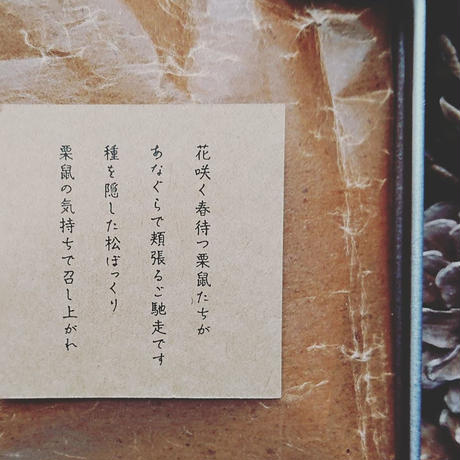 花咲く春待つ栗鼠たちが
あなぐらで頬張るご馳走です
種を隠した松ぼっくり
栗鼠の気持ちで召し上がれ